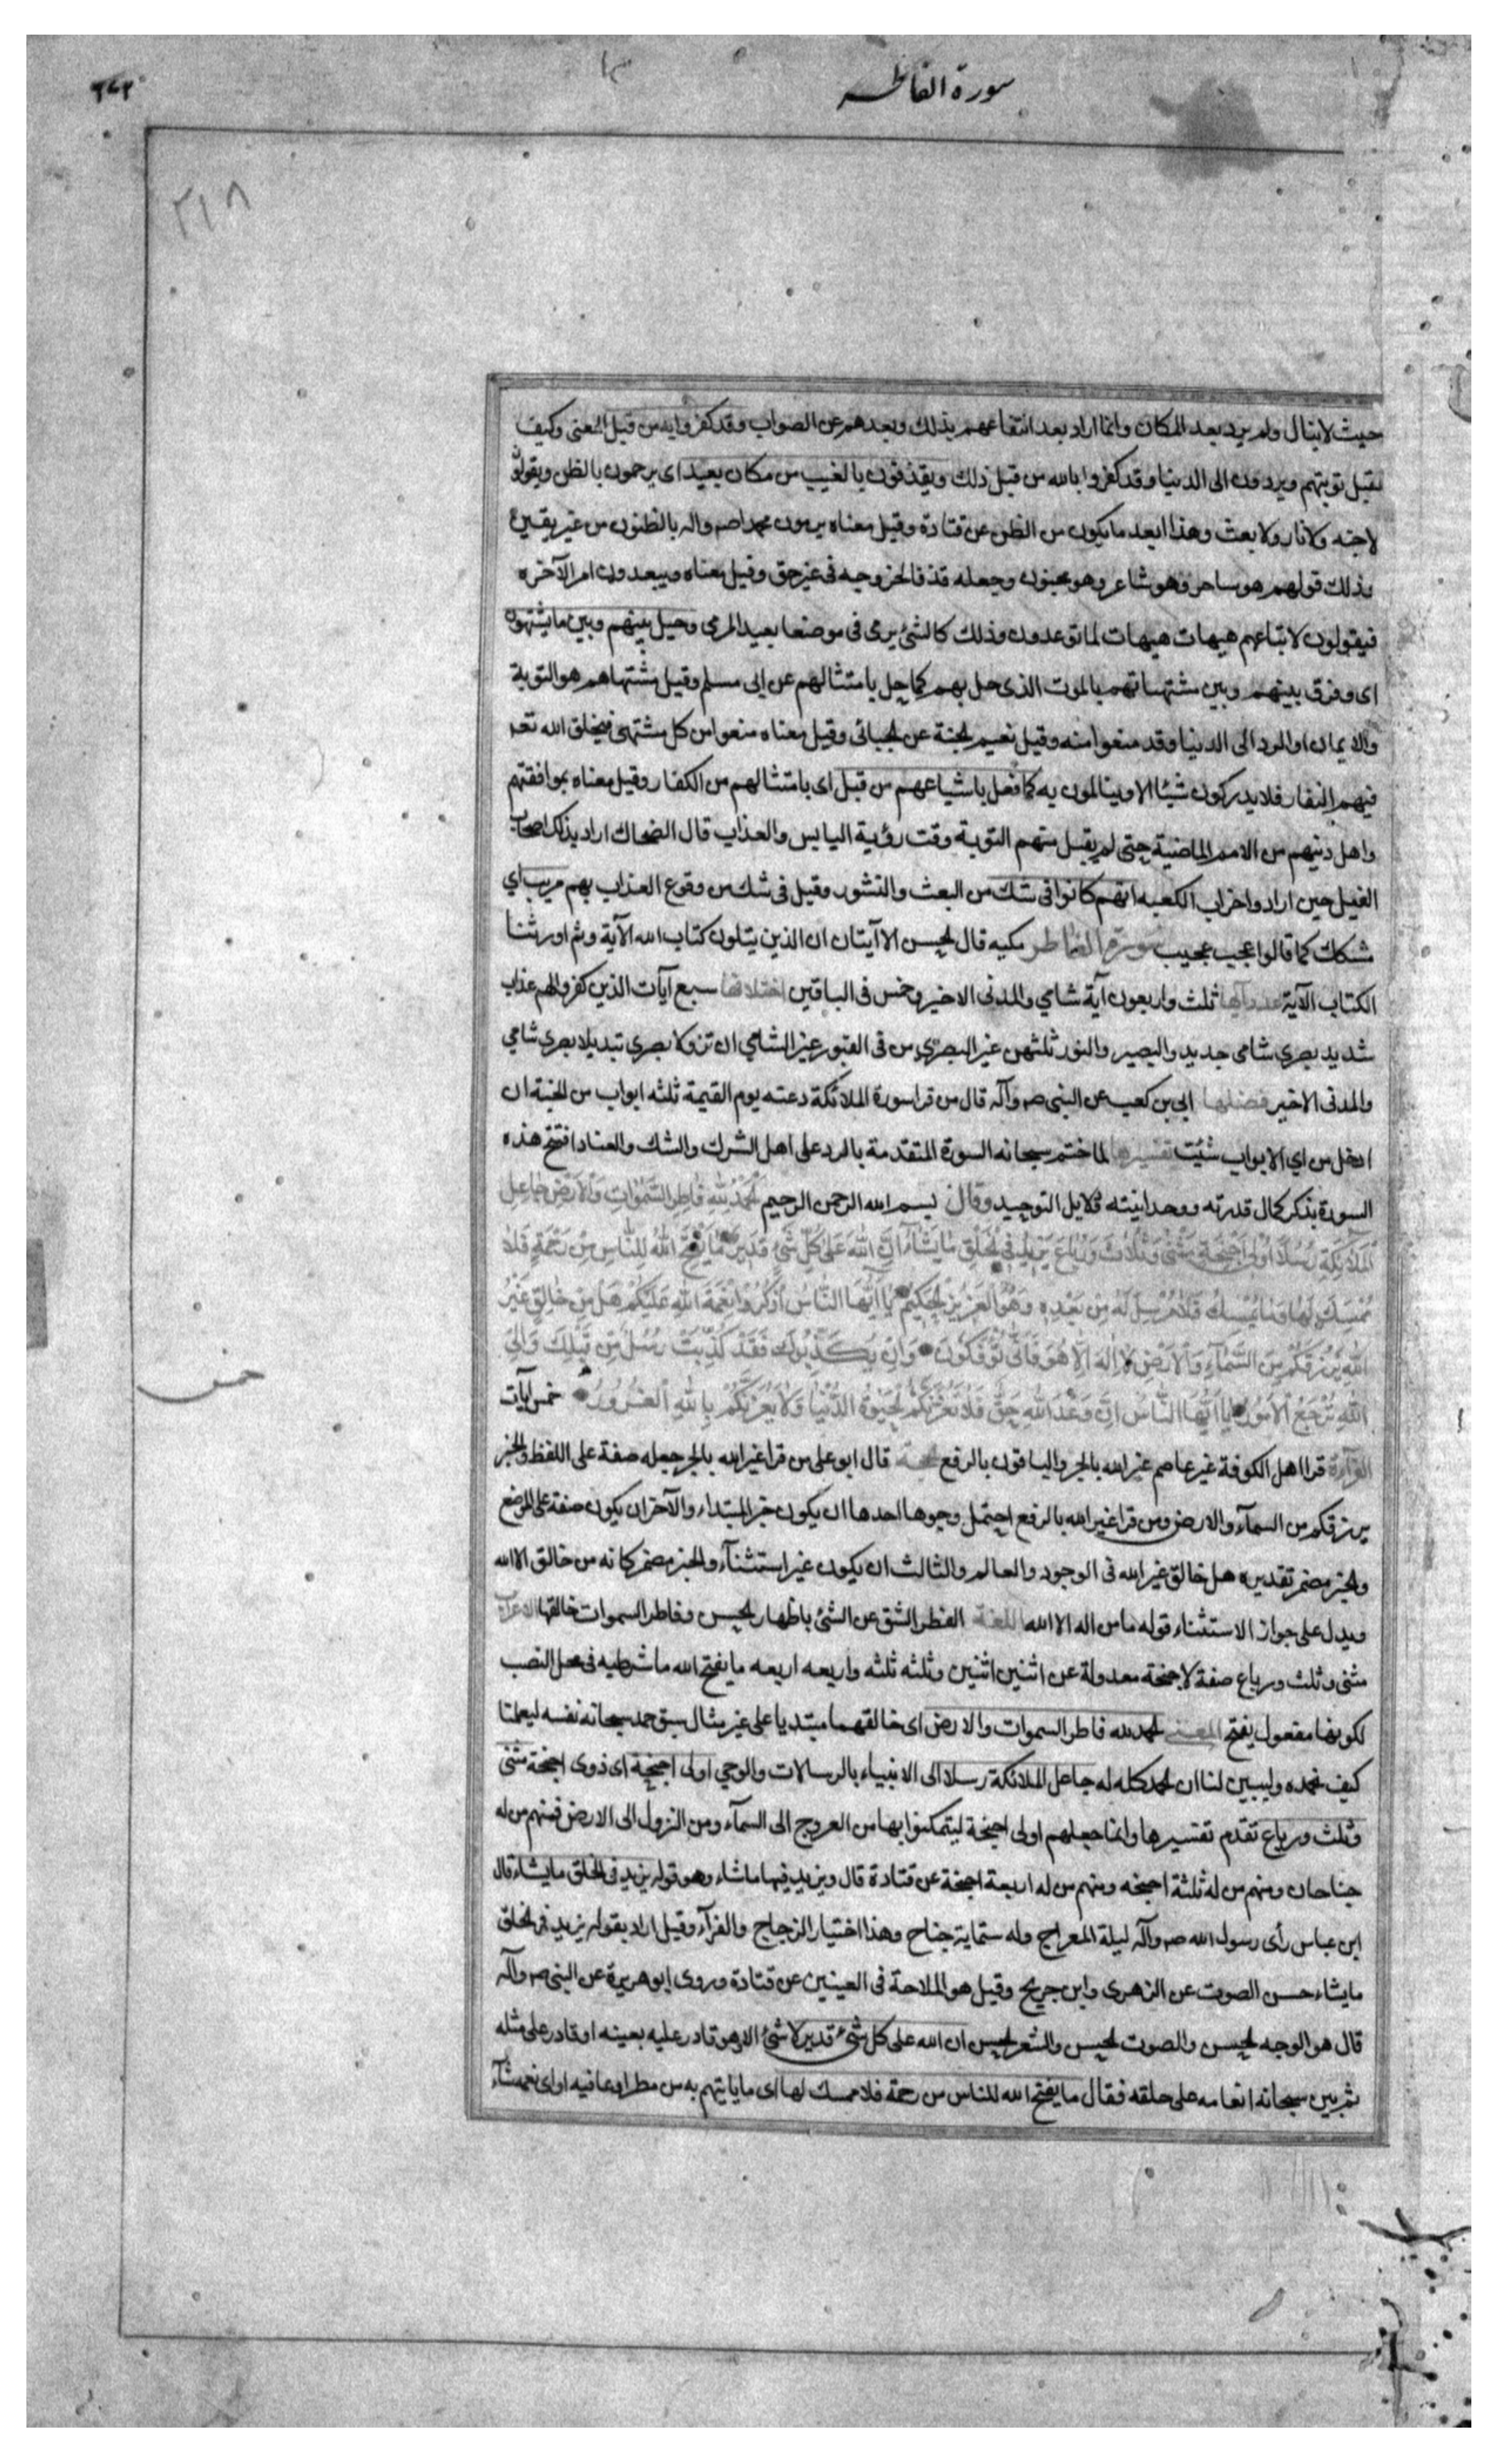 سورة الفاطر
٣٤٢
٢١٨
حيث لا ينال ولم يرد بعد المكان وانما اراد بعد انتفاعهم بذلك وبعدهم عن الصواب وقد كفروا به من قبل المعنى وكيف
تقبل توبتهم ويردون الى الدنيا وقد كفروا بالله من قبل ذلك ويقذفون بالغيب من مكان بعيد اى يرجمون بالظن ويقولون
لا جنه ولا نار ولا بعث وهذا ابعد ما يكون من الظن عن قتادة وقيل معناه يرمون محمدا صم واله بالظنون من غير يقين
وذلك قولهم هو ساحر وهو شاعر وهو مجنون وجعله قذفا لخروجه فى غير حق وقيل معناه ويبعدون امر الآخره
فيقولون لاتباعهم هيهات هيهات لما توعدون وذلك كالشئ يرمى فى موضعا بعيد المرمى وحيل بينهم وبين ما يشتهون
اى وفرق بينهم وبين مشتهياتهم بالموت الذى حل بهم كما حل بامثالهم عن ابى مسلم وقيل مشتهاهم هو التوبة
والايمان او الرد الى الدنيا وقد منعوا منه وقيل نعيم الجنة عن الجبائى وقيل معناه منعوا من كل مشتهى فيخلق الله تعـ
فيهم النفار فلا يدركون شيئا الا وينالمون به كما فعل باشياعهم من قبل اى بامثالهم من الكفار وقيل معناه بموافقتهم
واهل دينهم من الامم الماضية حتى لم يقبل منهم التوبة وقت رؤية الياس والعذاب قال الضحاك اراد بذلك اصحاب
الفيل حين ارادوا خراب الكعبه انهم كانوا فى شك من البعث والنشور وقيل فى شك من وقوع العذاب بهم مريب اي
مشكك كما قالوا عجب عجيب سورة الفاطر مكيه قال الحسن الا آيتان ان الذين يتلون كتاب الله الآية وثم اورثنا
الكتاب الآية عدد آيها ثلث واربعون آية شامي والمدنى الاخير وخمس فى الباقين اختلافها سبع آيات الذين كفروا لهم عذاب
شديد بصرى شامى جديد والبصير والنور ثلثهن غير البصرى من فى القبور غير الشامى ان تزولا بصرى تبديلا بصرى شامي
والمدنى الاخير فضلها ابي بن كعب عن النبى صم وآله قال من قرا سورة الملائكة دعته يوم القيمة ثلثه ابواب من الجنة ان
ادخل من اي الابواب شئت تفسيرها لما ختم سبحانه السورة المتقدمة بالرد على اهل الشرك والشك والعناد افتتح هذه
السورة بذكر كمال قدرته ووحدانيته ودلايل التوحيد وقال بسم الله الرحمن الرحيم الحمد لله فاطر السموات والارض جاعل
الملائكة رسلا اولى اجنحة مثنى وثلاث ورباع يزيد في الخلق ما يشاء ان الله على كل شئ قدير ما يفتح الله للناس من رحمة فلا
ممسك لها وما يمسك فلا مرسل له من بعده وهو العزيز الحكيم يا ايها الناس اذكروا نعمة الله عليكم هل من خالق غير
الله يرزقكم من السماء والارض لا اله الا هو فانى تؤفكون وان يكذبوك فقد كذبت رسل من قبلك والى
الله ترجع الامور يا ايها الناس ان وعد الله حق فلا تغرنكم الحيوة الدنيا ولا يغرنكم بالله الغرور خمس آيات
خمس
القراءة قرا اهل الكوفة غير عاصم غير الله بالجر والباقون بالرفع الحجة قال ابو على من قرا غير الله بالجر جعله صفة على اللفظ والخبر
يرزقكم من السمآء والارض ومن قرا غير الله بالرفع احتمل وجوها احدها ان يكون خبر المبتداء والآخر ان يكون صفة على الموضع
والخبر مضمر تقديره هل خالق غير الله فى الوجود والعالم والثالث ان يكون غير استثنآء والخبر مضمر كانه من خالق الا الله
ويدل على جواز الاستثناء قوله ما من اله الا الله اللغة الفطر الشق عن الشئ باظهار للحس وفاطر السموات خالقها الاعراب
مثنى وثلث ورباع صفة لاجنحة معدولة عن اثنين اثنين وثلثه ثلثه واربعه اربعه ما يفتح الله ما شرطيه فى محل النصب
لكونها مفعول يفتح المعنى الحمد لله فاطر السموات والارض اى خالقهما مبتديا على غير مثال سبق حمد سبحانه نفسه ليعلمنا
كيف نحمده وليبين لنا ان الحمد كله له جاعل الملائكة رسلا الى الانبياء بالرسالات والوحي اولى اجنحة اى ذوى اجنحة مثنى
وثلث ورباع تقدم تفسيرها وانما جعلهم اولى اجنحة ليتمكنوا بها من العروج الى السمآء ومن النزول الى الارض فمنهم من له
جناحان ومنهم من له ثلثة اجنحه ومنهم من له اربعة اجنحة عن قتادة قال ويزيد فيها ما شاء وهو قوله يزيد فى الخلق ما يشاء قال
ابن عباس رأى رسول الله صم وآله ليلة المعراج وله ستماية جناح وهذا اختيار الزجاج والفرآء وقيل اراد بقوله يزيد فى الخلق
ما يشاء حسن الصوت عن الزهرى وابن جريح وقيل هو الملاحة فى العينين عن قتادة وروى ابو هريرة عن النبى صم وآله
قال هو الوجه الحسن والصوت الحسن والشعر الحسن ان الله على كل شئ قدير لا شئ الا وهو قادر عليه بعينه او قادر على مثله
ثم بين سبحانه انعامه على خلقه فقال ما يفتح الله للناس من رحمة فلا ممسك لها اى ما ياتيهم به من مطر او عافيه او اى نعمه شآء